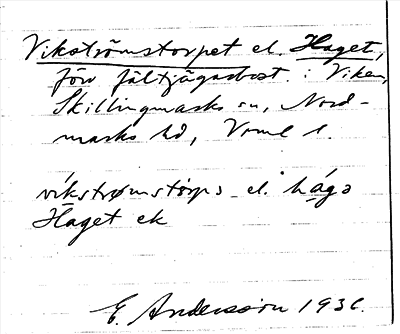 Vikströmstorpet el. Haget,
förv fältjägarbost. i Viken,
Skillingmarks sn, Nord-
marks hd, Vrml l.
víkstrømstörps el. hágə
Haget ek
E. Andersson 1936.